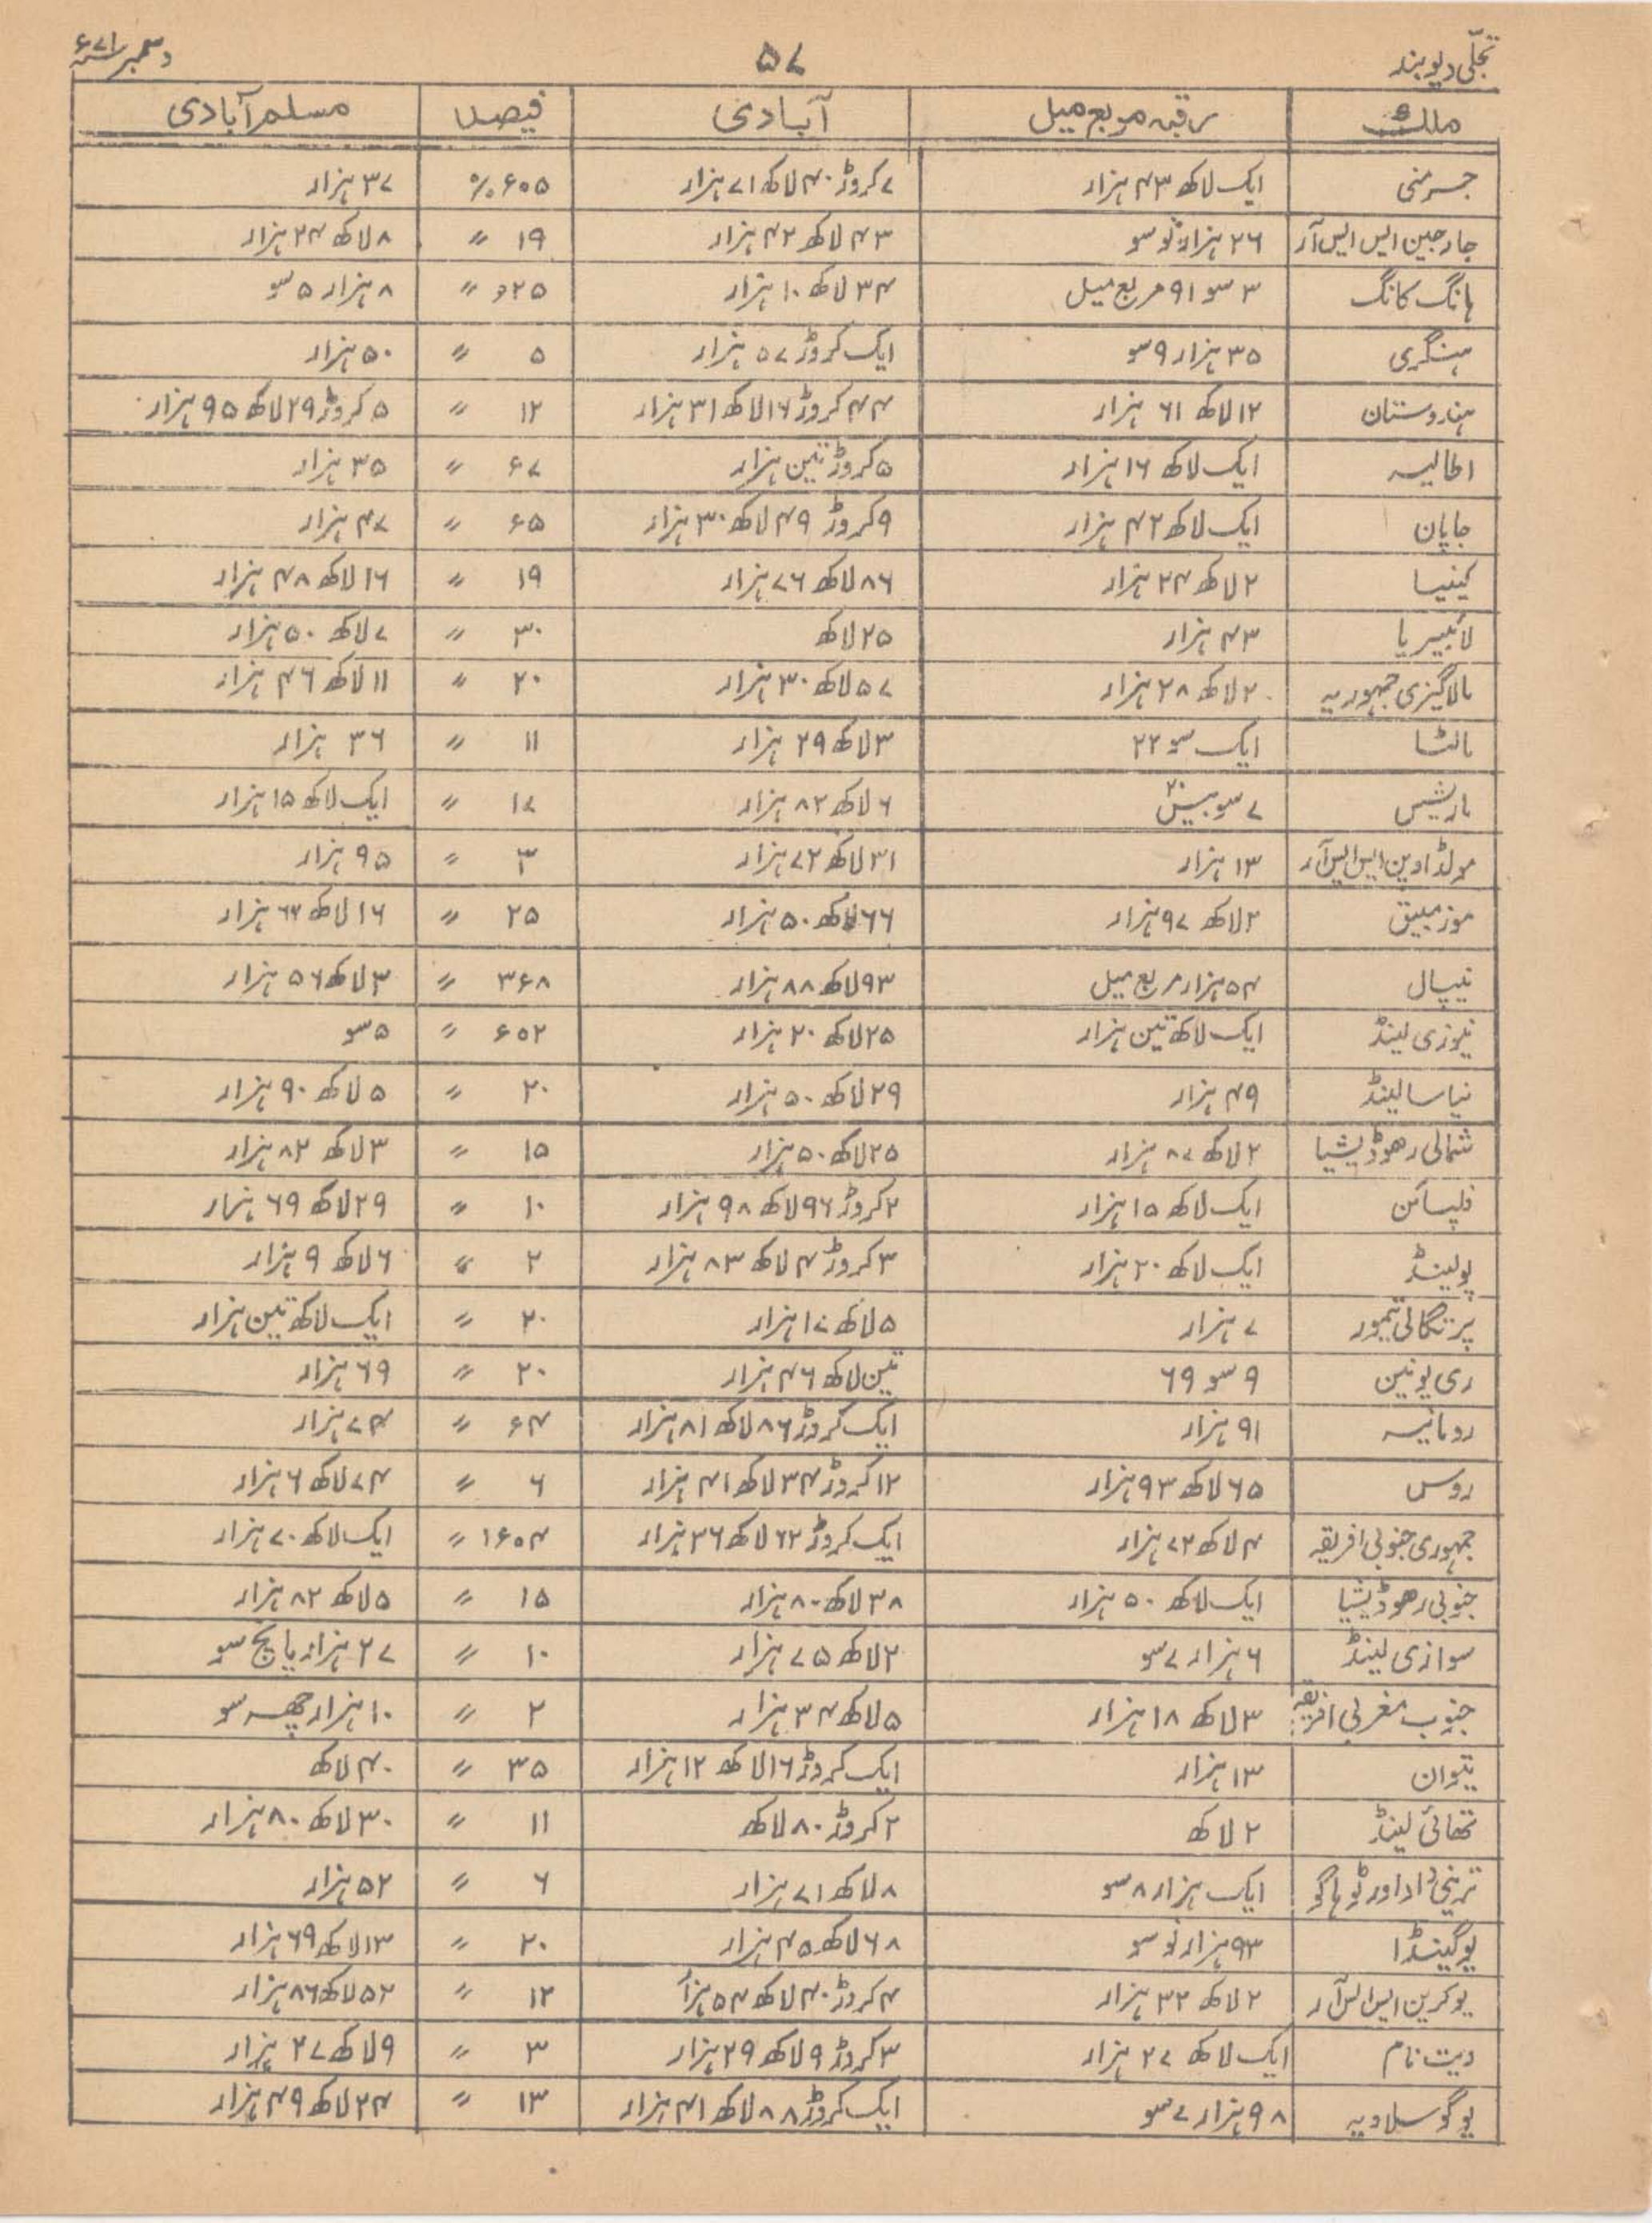 تجلّی دیوبند ۵۷ دسمبر ۷۱ء
ملک رقبہ مربع میل آبادی فیصد مسلم آبادی
جرمنی ایک لاکھ ۴۳ ہزار ۷ کروڑ ۴۰ لاکھ ۷۱ ہزار ۶۰۵% ۳۷ ہزار
جارجین ایس ایس آر ۲۶ ہزار نو سو ۴۳ لاکھ ۴۲ ہزار ۱۹ 〃 ۸ لاکھ ۲۴ ہزار
ہانگ کانگ ۳ سو ۹۱ مربع میل ۳۴ لاکھ ۱۰ ہزار ۲۵ء 〃 ۸ ہزار ۵ سو
ہنگری ۳۵ ہزار ۹ سو ایک کروڑ ۵۷ ہزار ۵ 〃 ۵۰ ہزار
ہندوستان ۱۲ لاکھ ۶۱ ہزار ۴۴ کروڑ ۱۶ لاکھ ۳۱ ہزار ۱۲ 〃 ۵ کروڑ ۲۹ لاکھ ۹۵ ہزار
اطالیہ ایک لاکھ ۱۶ ہزار ۵ کروڑ تین ہزار ء۷ 〃 ۳۵ ہزار
جاپان ایک لاکھ ۴۲ ہزار ۹ کروڑ ۴۹ لاکھ ۳۰ ہزار ء۵ 〃 ۴۷ ہزار
کینیا ۲ لاکھ ۲۴ ہزار ۸۶ لاکھ ۷۶ ہزار ۱۹ 〃 ۱۶ لاکھ ۴۸ ہزار
لائبیریا ۴۳ ہزار ۲۵ لاکھ ۳۰ 〃 ۷ لاکھ ۵۰ ہزار
مالاگیزی جمہوریہ ۲ لاکھ ۲۸ ہزار ۵۷ لاکھ ۳۰ ہزار ۲۰ 〃 ۱۱ لاکھ ۴۶ ہزار
مالٹا ایک سو ۲۲ ۳ لاکھ ۲۹ ہزار ۱۱ 〃 ۳۶ ہزار
ماریشس ۷ سو بیس ۲۰ ۶ لاکھ ۸۲ ہزار ۱۷ 〃 ایک لاکھ ۱۵ ہزار
مولڈاوین ایس ایس آر ۱۳ ہزار ۳۱ لاکھ ۷۲ ہزار ۳ 〃 ۹۵ ہزار
موزمبیق ۲ لاکھ ۹۷ ہزار ۶۶ لاکھ ۵۰ ہزار ۲۵ 〃 ۱۶ لاکھ ۶۲ ہزار
نیپال ۵۴ ہزار مربع میل ۹۳ لاکھ ۸۸ ہزار ۳ء۸ 〃 ۳ لاکھ ۵۶ ہزار
نیوزی لینڈ ایک لاکھ تین ہزار ۲۵ لاکھ ۲۰ ہزار ء۰۲ 〃 ۵ سو
نیاسالینڈ ۴۹ ہزار ۲۹ لاکھ ۵۰ ہزار ۲۰ 〃 ۵ لاکھ ۹۰ ہزار
شمالی رھوڈیشیا ۲ لاکھ ۸۷ ہزار ۲۵ لاکھ ۵۰ ہزار ۱۵ 〃 ۳ لاکھ ۸۲ ہزار
فلپائن ایک لاکھ ۱۵ ہزار ۲ کروڑ ۹۶ لاکھ ۹۸ ہزار ۱۰ 〃 ۲۹ لاکھ ۶۹ ہزار
پولینڈ ایک لاکھ ۲۰ ہزار ۳ کروڑ ۴ لاکھ ۸۳ ہزار ۲ 〃 ۶ لاکھ ۹ ہزار
پرتگالی تیمور ۷ ہزار ۵ لاکھ ۱۷ ہزار ۲۰ 〃 ایک لاکھ تین ہزار
ری یونین ۹ سو ۶۹ تین لاکھ ۴۶ ہزار ۲۰ 〃 ۶۹ ہزار
رومانیہ ۹۱ ہزار ایک کروڑ ۸۶ لاکھ ۸۱ ہزار ء۴ 〃 ۷۴ ہزار
روس ۶۵ لاکھ ۹۳ ہزار ۱۲ کروڑ ۳۴ لاکھ ۴۱ ہزار ۶ 〃 ۷۴ لاکھ ۶ ہزار
جمہوری جنوبی افریقہ ۴ لاکھ ۷۲ ہزار ایک کروڑ ۶۲ لاکھ ۳۶ ہزار ۱ء۰۴ 〃 ایک لاکھ ۷۰ ہزار
جنوبی رھوڈیشیا ایک لاکھ ۵۰ ہزار ۳۸ لاکھ ۸۰ ہزار ۱۵ 〃 ۵ لاکھ ۸۲ ہزار
سوازی لینڈ ۶ ہزار ۷ سو ۲ لاکھ ۷۵ ہزار ۱۰ 〃 ۲۷ ہزار پانچ سو
جنوب مغربی افریقہ ۳ لاکھ ۱۸ ہزار ۵ لاکھ ۳۴ ہزار ۲ 〃 ۱۰ ہزار چھ سو
تیوان ۱۳ ہزار ایک کروڑ ۱۶ لاکھ ۱۲ ہزار ۳۵ 〃 ۴۰ لاکھ
تھائی لینڈ ۲ لاکھ ۲ کروڑ ۸۰ لاکھ ۱۱ 〃 ۳۰ لاکھ ۸۰ ہزار
ترینی داد اور ٹوباگو ایک ہزار ۸ سو ۸ لاکھ ۷۱ ہزار ۶ 〃 ۵۲ ہزار
یوگینڈا ۹۳ ہزار نو سو ۶۸ لاکھ ۴۵ ہزار ۲۰ 〃 ۱۳ لاکھ ۶۹ ہزار
یوکرین ایس ایس آر ۲ لاکھ ۳۲ ہزار ۴ کروڑ ۴۰ لاکھ ۵۴ ہزار ۱۲ 〃 ۵۲ لاکھ ۸۶ ہزار
ویت نام ایک لاکھ ۲۷ ہزار ۳ کروڑ ۹ لاکھ ۲۹ ہزار ۳ 〃 ۹ لاکھ ۲۷ ہزار
یوگوسلاویہ ۹۸ ہزار ۷ سو ایک کروڑ ۸۸ لاکھ ۴۱ ہزار ۱۳ 〃 ۲۴ لاکھ ۴۹ ہزار